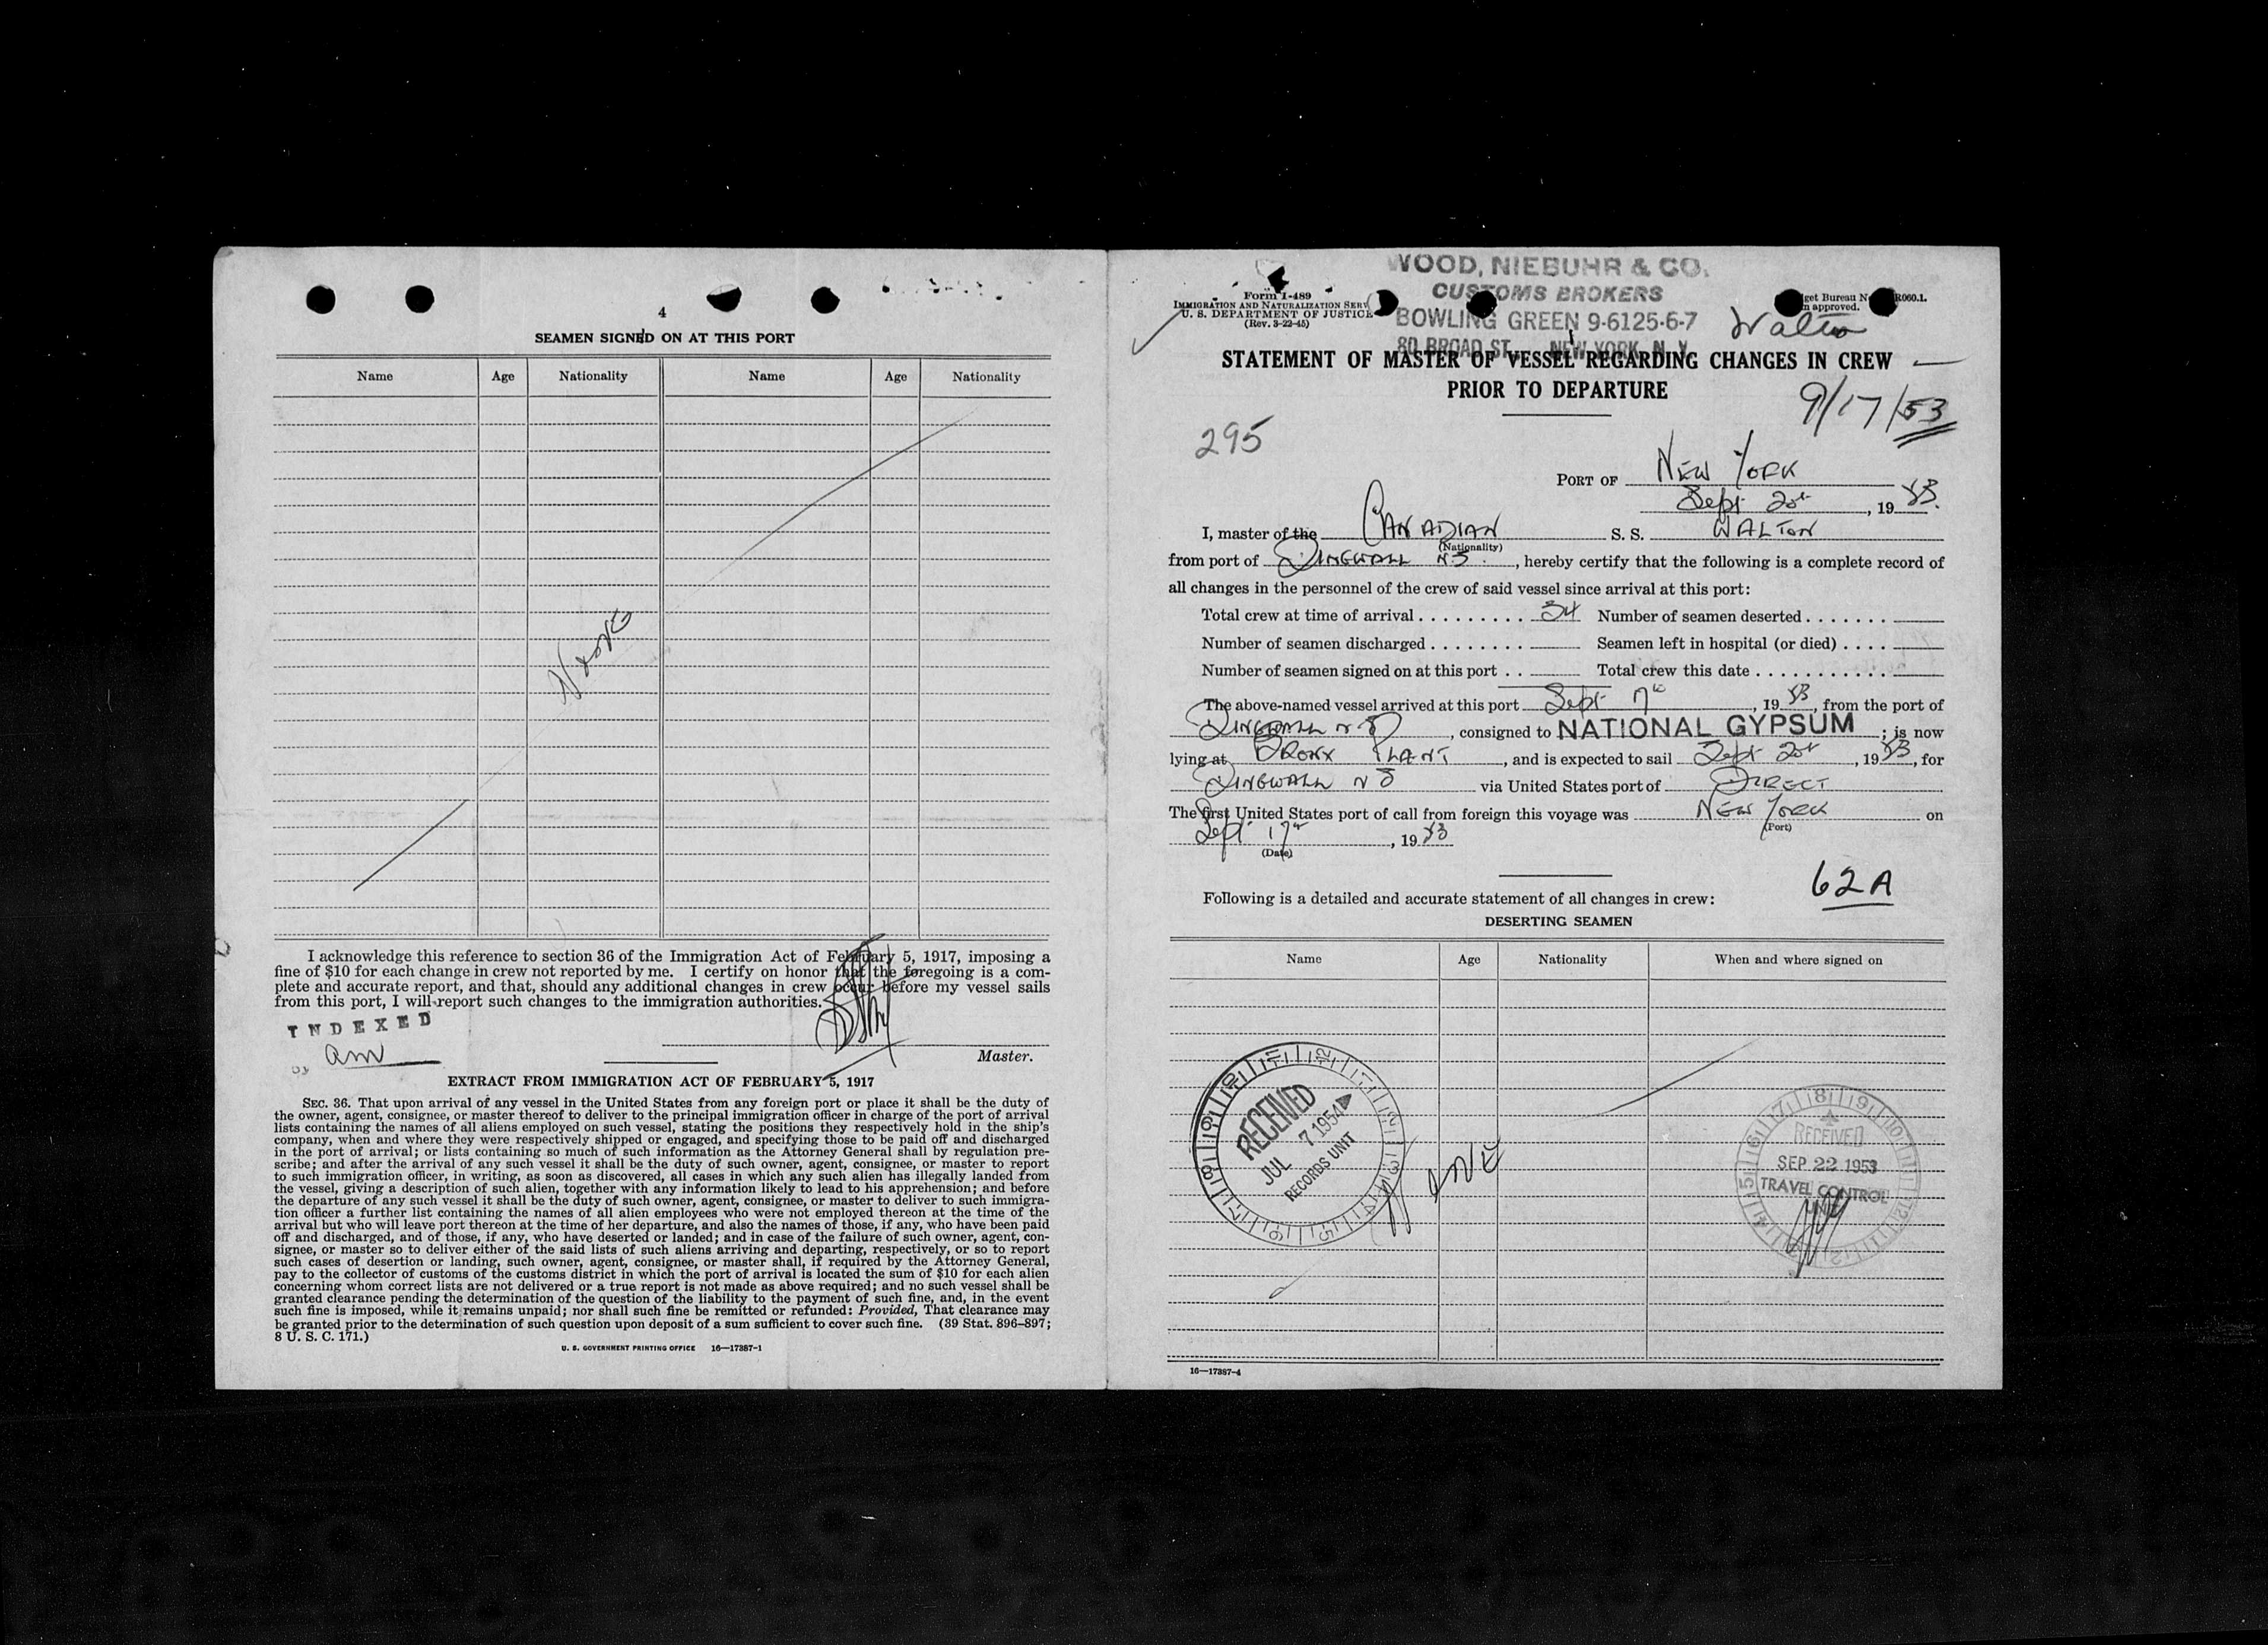 4
SEAMEN SIGNED ON AT THIS PORT
Name Age Nationality Name Age Nationality
None
I acknowledge this reference to section 36 of the Immigration Act of February 5, 1917, imposing a
fine of $10 for each change in crew not reported by me. I certify on honor that the foregoing is a com-
plete and accurate report, and that, should any additional changes in crew occur before my vessel sails
from this port, I will report such changes to the immigration authorities.
INDEXED
by am
Master.
EXTRACT FROM IMMIGRATION ACT OF FEBRUARY 5, 1917
SEC. 36. That upon arrival of any vessel in the United States from any foreign port or place it shall be the duty of
the owner, agent, consignee, or master thereof to deliver to the principal immigration officer in charge of the port of arrival
lists containing the names of all aliens employed on such vessel, stating the positions they respectively hold in the ship's
company, when and where they were respectively shipped or engaged, and specifying those to be paid off and discharged
in the port of arrival; or lists containing so much of such information as the Attorney General shall by regulation pre-
scribe; and after the arrival of any such vessel it shall be the duty of such owner, agent, consignee, or master to report
to such immigration officer, in writing, as soon as discovered, all cases in which any such alien has illegally landed from
the vessel, giving a description of such alien, together with any information likely to lead to his apprehension; and before
the departure of any such vessel it shall be the duty of such owner, agent, consignee, or master to deliver to such immigra-
tion officer a further list containing the names of all alien employees who were not employed thereon at the time of the
arrival but who will leave port thereon at the time of her departure, and also the names of those, if any, who have been paid
off and discharged, and of those, if any, who have deserted or landed; and in case of the failure of such owner, agent, con-
signee, or master so to deliver either of the said lists of such aliens arriving and departing, respectively, or so to report
such cases of desertion or landing, such owner, agent, consignee, or master shall, if required by the Attorney General,
pay to the collector of customs of the customs district in which the port of arrival is located the sum of $10 for each alien
concerning whom correct lists are not delivered or a true report is not made as above required; and no such vessel shall be
granted clearance pending the determination of the question of the liability to the payment of such fine, and, in the event
such fine is imposed, while it remains unpaid; nor shall such fine be remitted or refunded: Provided, That clearance may
be granted prior to the determination of such question upon deposit of a sum sufficient to cover such fine. (39 Stat. 896–897;
8 U. S. C. 171.)
U. S. GOVERNMENT PRINTING OFFICE 16—17387-1
Form I-489
IMMIGRATION AND NATURALIZATION SERV
U. S. DEPARTMENT OF JUSTICE
(Rev. 3-22-45)
WOOD, NIEBUHR & CO.
CUSTOMS BROKERS
BOWLING GREEN 9-6125-6-7
80 BROAD ST. NEW YORK, N. Y.
get Bureau N R060.1.
approved.
Walton
STATEMENT OF MASTER OF VESSEL REGARDING CHANGES IN CREW
PRIOR TO DEPARTURE
9/17/53
295
PORT OF NEW YORK
Sept 20th, 1953.
I, master of the CANADIAN S. S. WALTON
(Nationality)
from port of DINGWALL N.S., hereby certify that the following is a complete record of
all changes in the personnel of the crew of said vessel since arrival at this port:
Total crew at time of arrival . . . . . . . . . 34 Number of seamen deserted . . . . . . .
Number of seamen discharged . . . . . . . . Seamen left in hospital (or died) . . . .
Number of seamen signed on at this port . . Total crew this date . . . . . . . . . . .
The above-named vessel arrived at this port Sept 17th, 1953, from the port of
DINGWALL N S, consigned to NATIONAL GYPSUM; is now
lying at BRONX PLANT, and is expected to sail Sept 20th, 1953, for
DINGWALL N S via United States port of DIRECT
The first United States port of call from foreign this voyage was NEW YORK on
(Port)
Sept 17th, 1953
(Date)
62A
Following is a detailed and accurate statement of all changes in crew:
DESERTING SEAMEN
Name Age Nationality When and where signed on
RECEIVED
JUL 7 1954
RECORDS UNIT
None
RECEIVED
SEP 22 1953
TRAVEL CONTROL
UNIT
16—17387-4